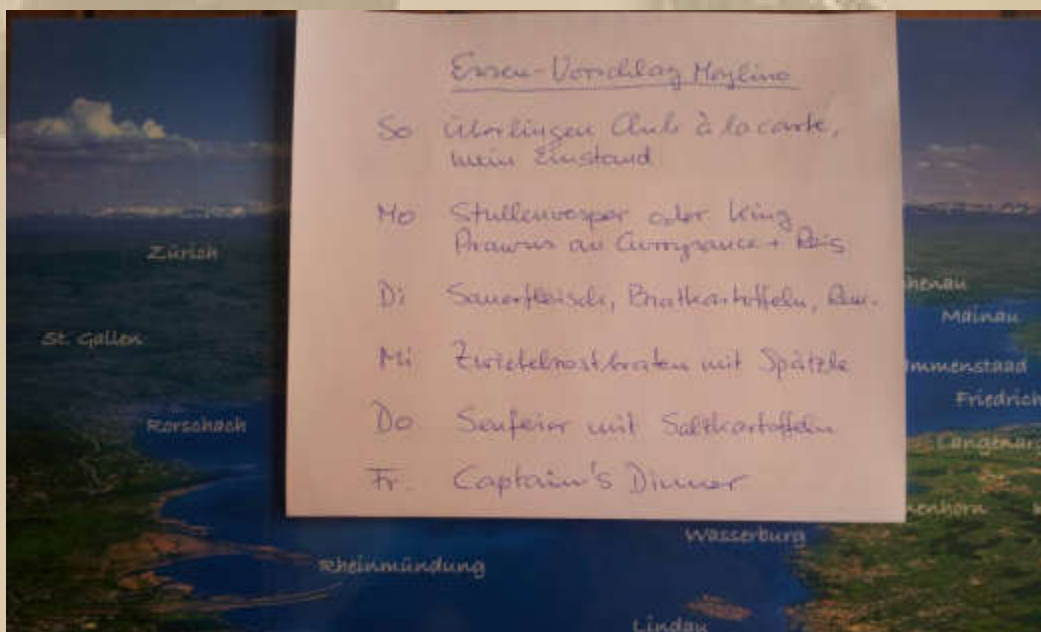 Essen-Vorschlag
So Überlingen Club à la carte,
mein Einstand
Mo Stullenvesper oder King
Prawns an Currysauce + Reis
Di Sauerfleisch, Bratkartoffeln,
Mi Zwiebelrostbraten mit Spätzle
Do Senfeier mit Salzkartoffeln
Fr. Captain's Dinner
Zürich
St. Gallen
Rorschach
Rheinmündung
henau
Mainau
Immenstaad
Friedrich
Langenarg
nenhorn
Wasserburg
Lindau